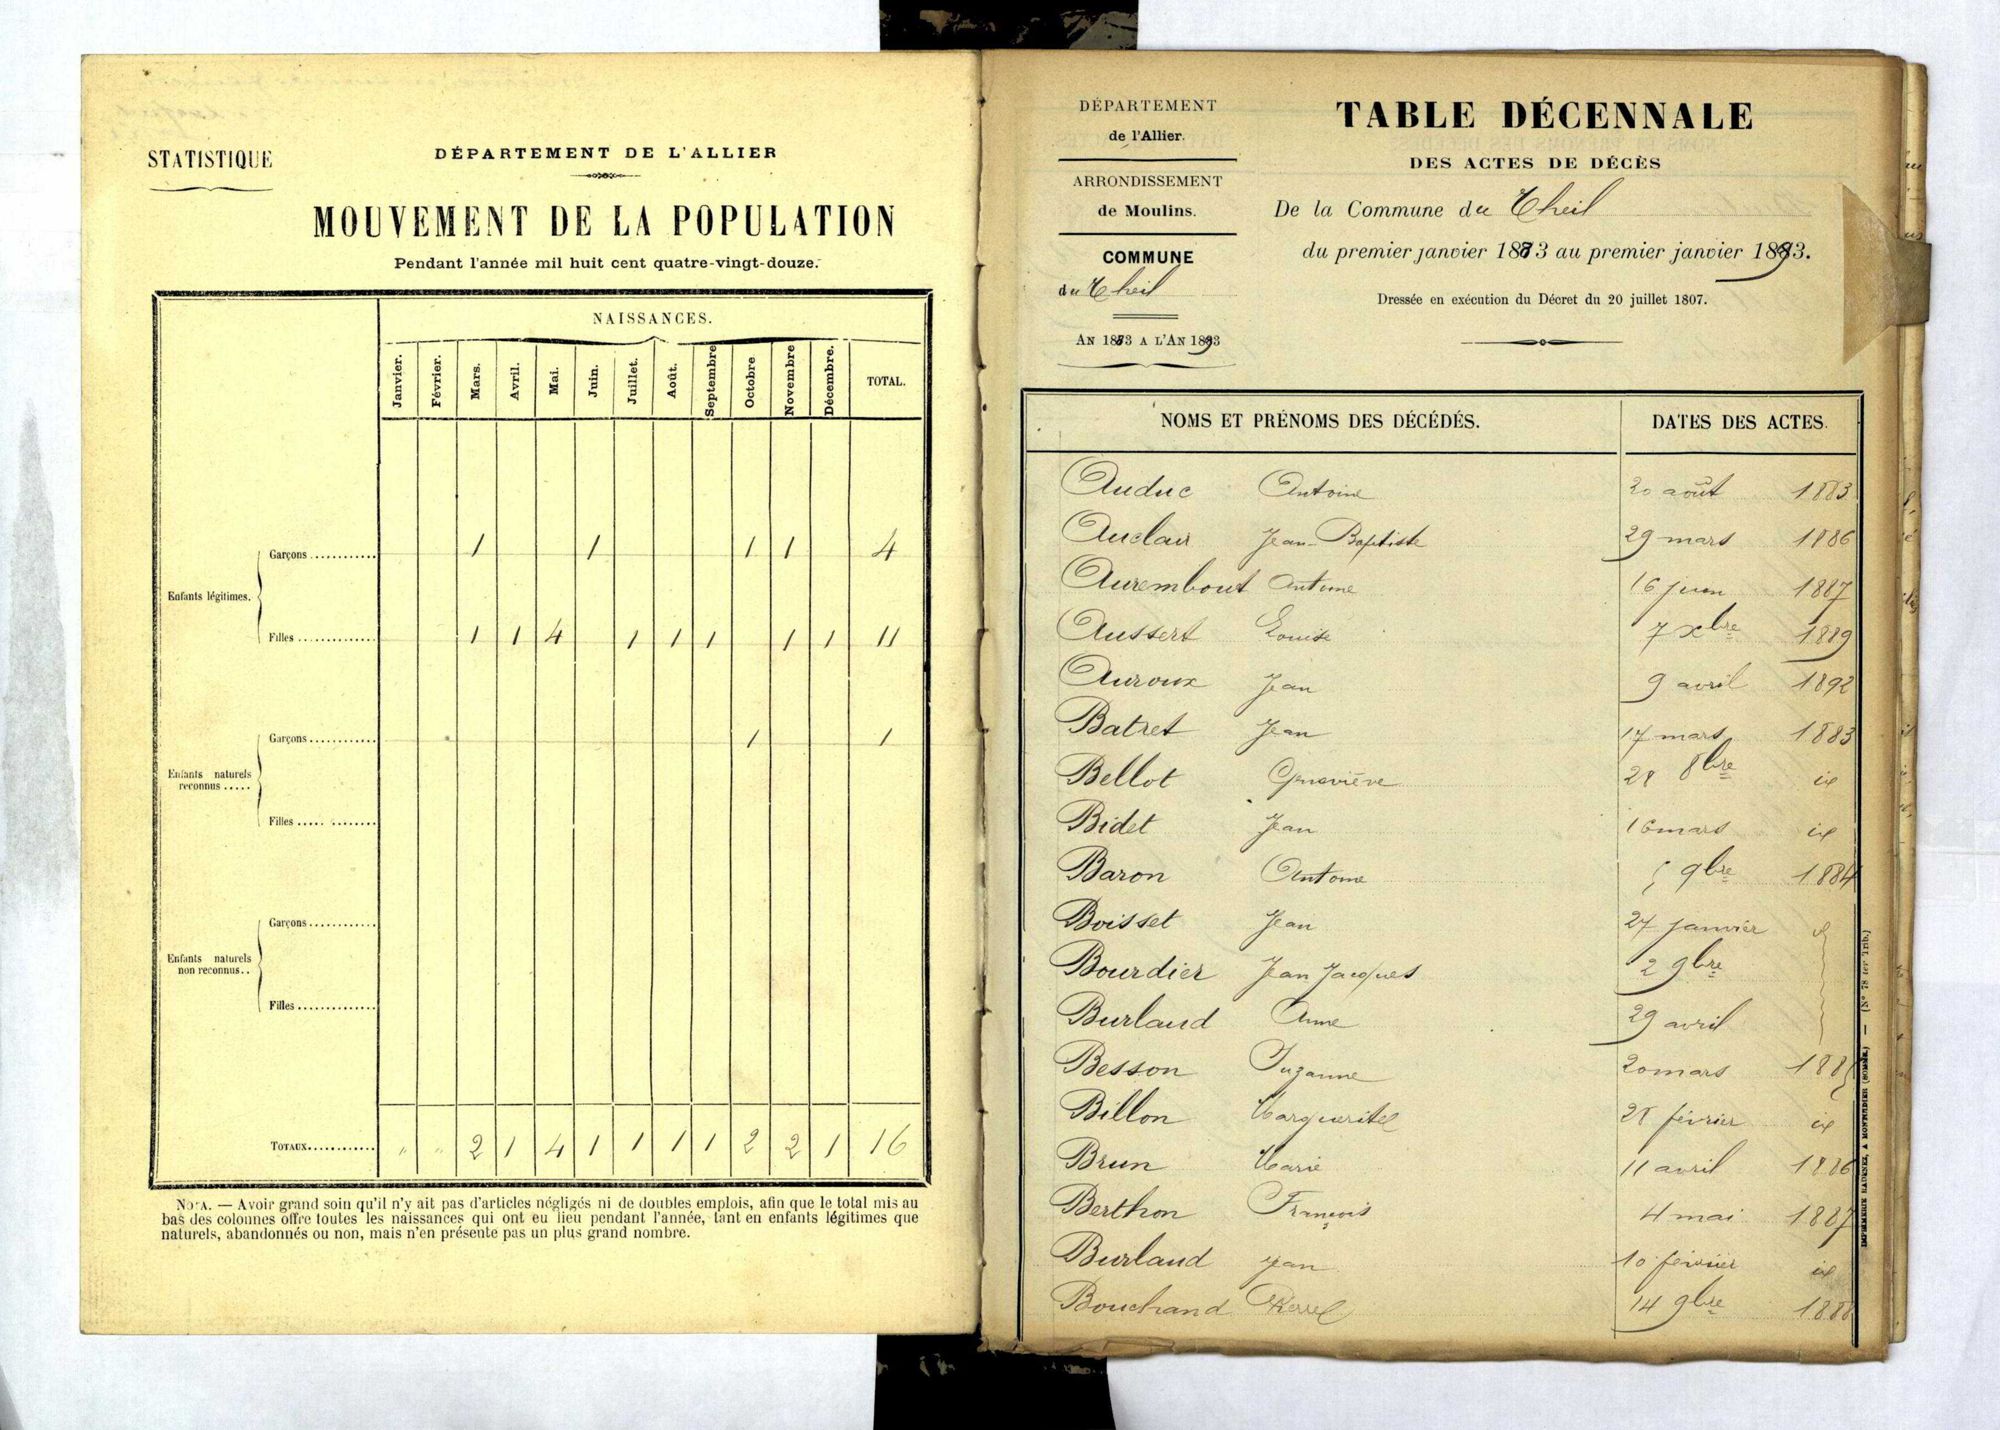 STATISTIQUE
DÉPARTEMENT DE L'ALLIER
MOUVEMENT DE LA POPULATION
Pendant l'année mil huit cent quatre-vingt-douze.
NAISSANCES.
Janvier. Février. Mars. Avril. Mai. Juin. Juillet. Août. Septembre Octobre Novembre Décembre. TOTAL.
Enfants légitimes.
Garçons 1 1 1 1 4
Filles 1 1 4 1 1 1 1 1 11
Enfants naturels reconnus
Garçons 1 1
Filles
Enfants naturels non reconnus
Garçons
Filles
TOTAUX " " 2 1 4 1 1 1 1 2 2 1 16
NOTA. — Avoir grand soin qu'il n'y ait pas d'articles négligés ni de doubles emplois, afin que le total mis au
bas des colonnes offre toutes les naissances qui ont eu lieu pendant l'année, tant en enfants légitimes que
naturels, abandonnés ou non, mais n'en présente pas un plus grand nombre.
DÉPARTEMENT
de l'Allier.
ARRONDISSEMENT
de Moulins.
COMMUNE
du Theil
AN 1883 A L'AN 1893
TABLE DÉCENNALE
DES ACTES DE DÉCÈS
De la Commune du Theil
du premier janvier 1883 au premier janvier 1893.
Dressée en exécution du Décret du 20 juillet 1807.
NOMS ET PRÉNOMS DES DÉCÉDÉS. DATES DES ACTES.
Auduc Antoine 20 août 1883
Auclair Jean-Baptiste 29 mars 1886
Aurembout Antoine 16 juin 1887
Aussert Louise 7 Xbre 1889
Auroux Jean 9 avril 1892
Batret Jean 17 mars 1883
Bellot Geneviève 28 8bre id
Bidet Jean 16 mars id
Baron Antoine 5 9bre 1884
Boisset Jean 27 janvier id
Bourdier Jean Jacques 2 9bre
Burlaud Anne 29 avril
Besson Suzanne 20 mars 1885
Billon Marguerite 28 février id
Brun Marie 11 avril 1886
Berthon François 4 mai 1887
Burlaud Jean 10 février id
Bouchand Pierre 14 9bre 1888
IMPRIMERIE RADENEZ, A MONTDIDIER (SOMME.) — (N° 78 ter Trib.)